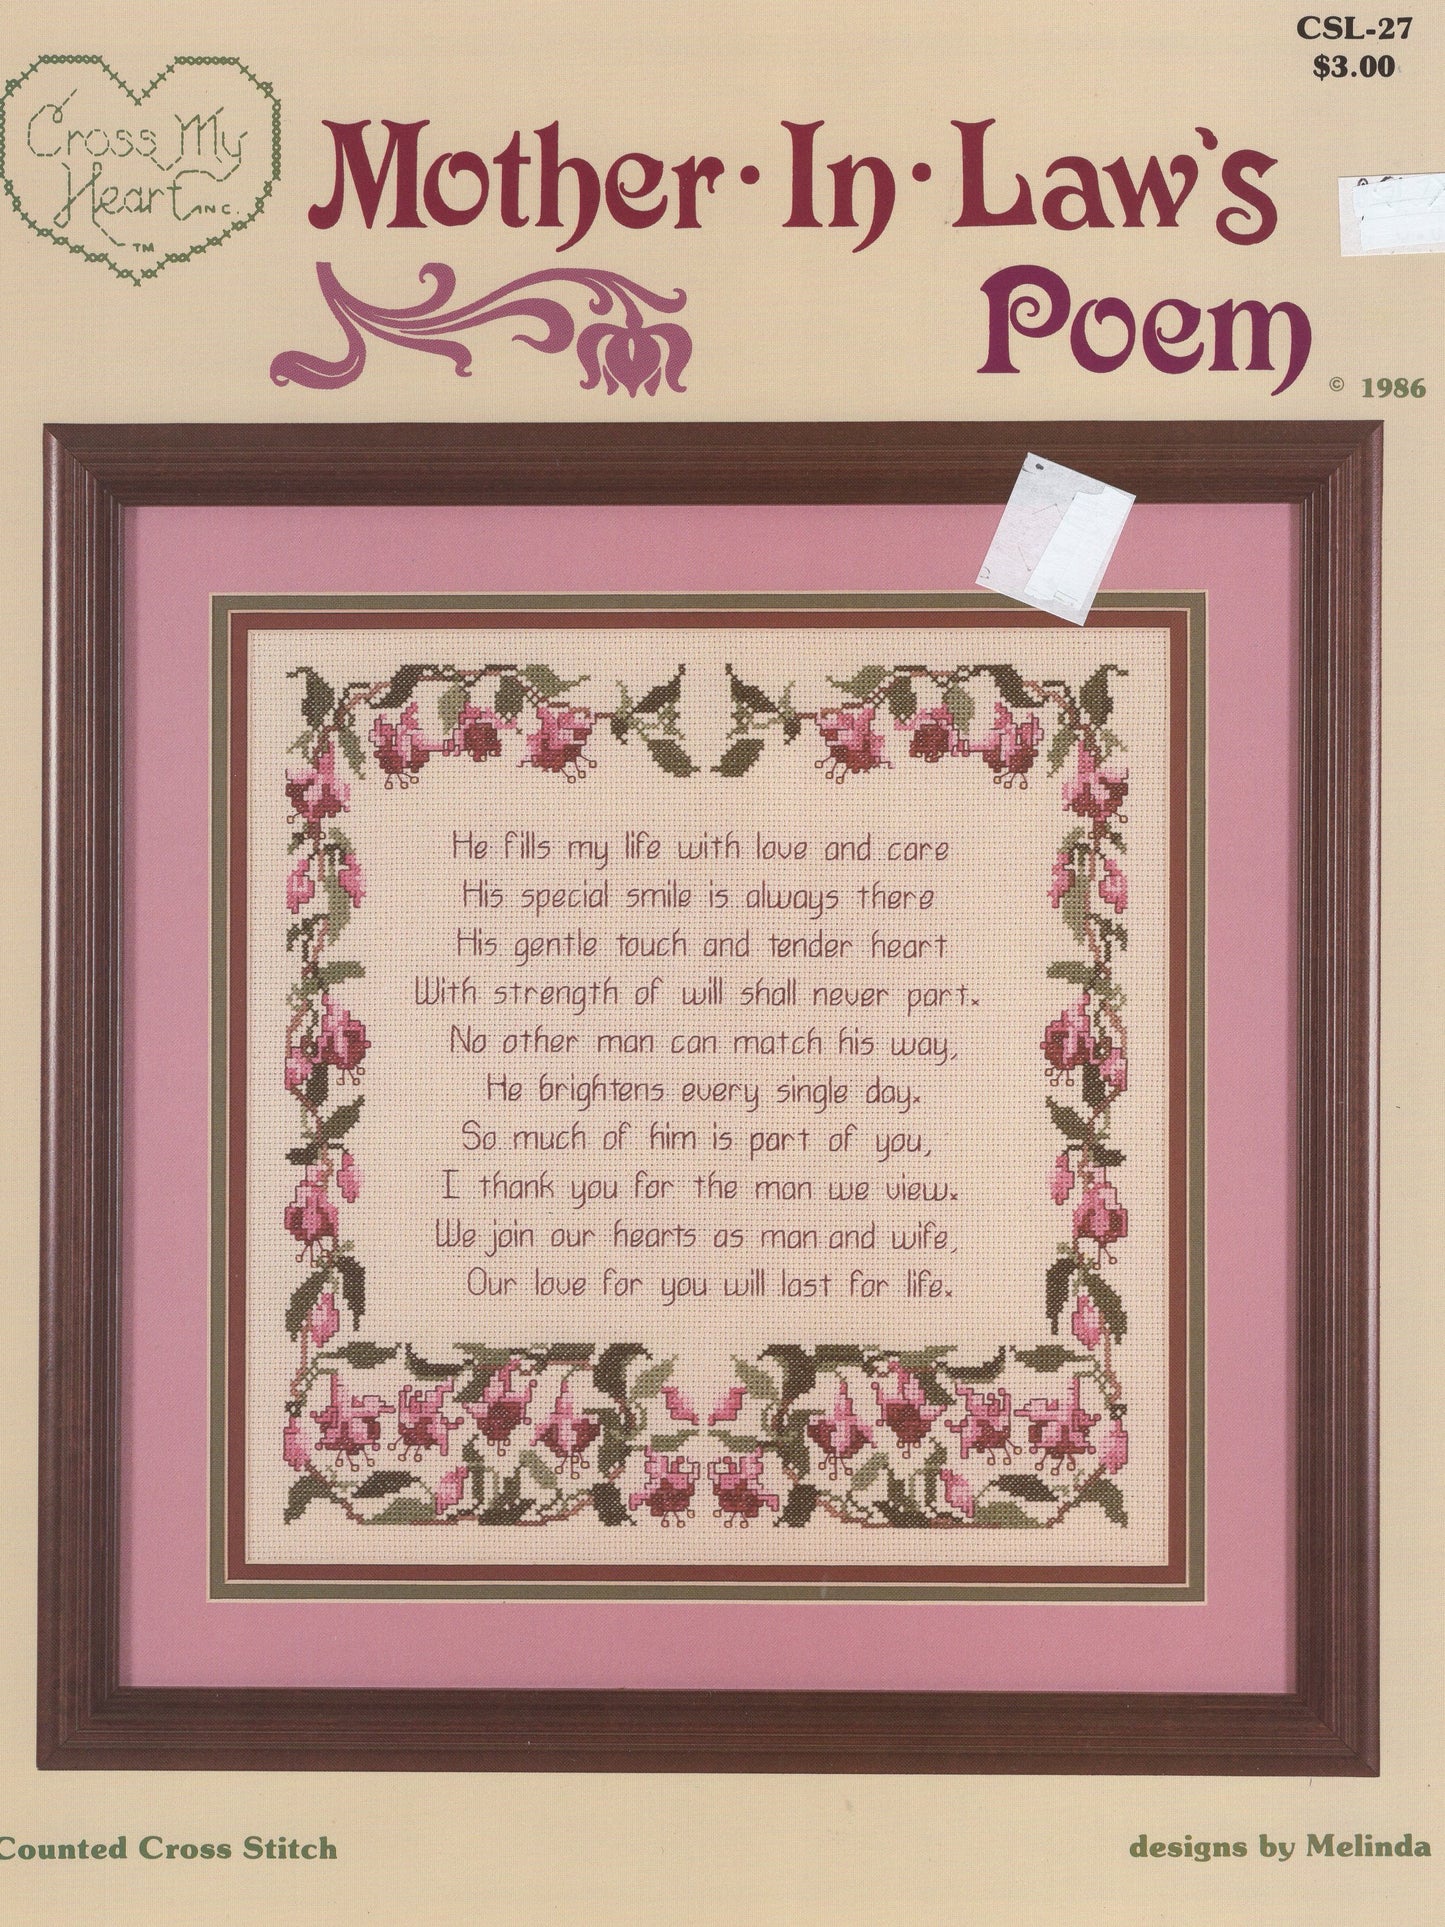 CSL-27
$3.00
Cross My
Heart INC.
TM
Mother·In·Law's
Poem
© 1986
He fills my life with love and care
His special smile is always there
His gentle touch and tender heart
With strength of will shall never part.
No other man can match his way,
He brightens every single day.
So much of him is part of you,
I thank you for the man we view.
We join our hearts as man and wife,
Our love for you will last for life.
Counted Cross Stitch
designs by Melinda